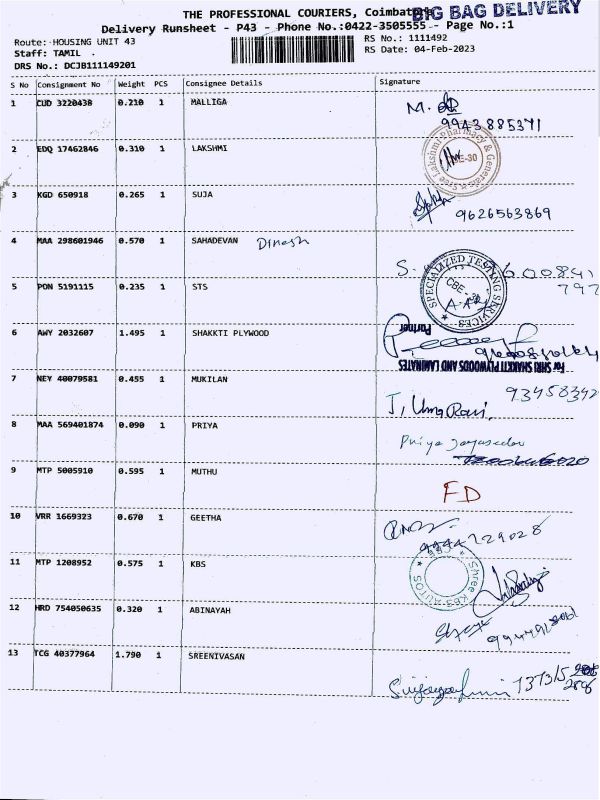 THE PROFESSIONAL COURIERS, Coimbatore
BIG BAG DELIVERY
Delivery Runsheet - P43 - Phone No.:0422-3505555 - Page No.:1
Route: HOUSING UNIT 43
RS No.: 1111492
Staff: TAMIL .
RS Date: 04-Feb-2023
DRS No.: DCJB111149201
S No Consignment No Weight PCS Consignee Details Signature
1 CUD 3220438 0.210 1 MALLIGA
M.
9943885371
2 EDQ 17462846 0.310 1 LAKSHMI
Sree Lakshmi Pharmacy & Generals
CBE-30
3 KGD 650918 0.265 1 SUJA
9626563869
4 MAA 298601946 0.570 1 SAHADEVAN Dinesh
S.
5 PON 5191115 0.235 1 STS
SPECIALIZED TESTING SERVICES
CBE - 30
6 AWY 2032607 1.495 1 SHAKKTI PLYWOOD
Partner
For SHRI SHAKKTI PLYWOODS AND LAMINATES
7 NEY 40079581 0.455 1 MUKILAN
93458342
J, Uma Rani.
8 MAA 569401874 0.090 1 PRIYA
Priya
9 MTP 5005910 0.595 1 MUTHU
FD
10 VRR 1669323 0.670 1 GEETHA
9944229028
11 MTP 1208952 0.575 1 KBS
Shree KBS AUTOS
12 HRD 754050635 0.320 1 ABINAYAH
13 TCG 40377964 1.790 1 SREENIVASAN